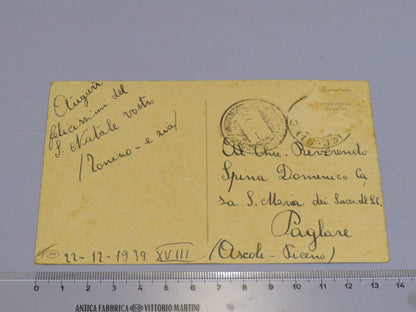 Auguri
felicissimi del
S. Natale vostro
Tonino - e zia
22-12-1939 XVIII
All Chie. Reverendo
Spena Domenico Ca
sa S. Maria dei Sacr. del S.C.
Pagliare
(Ascoli-Piceno)
0 1 2 3 4 5 6 7 8 9 10 11 12 13 14
ANTICA FABBRICA VITTORIO MARTINI